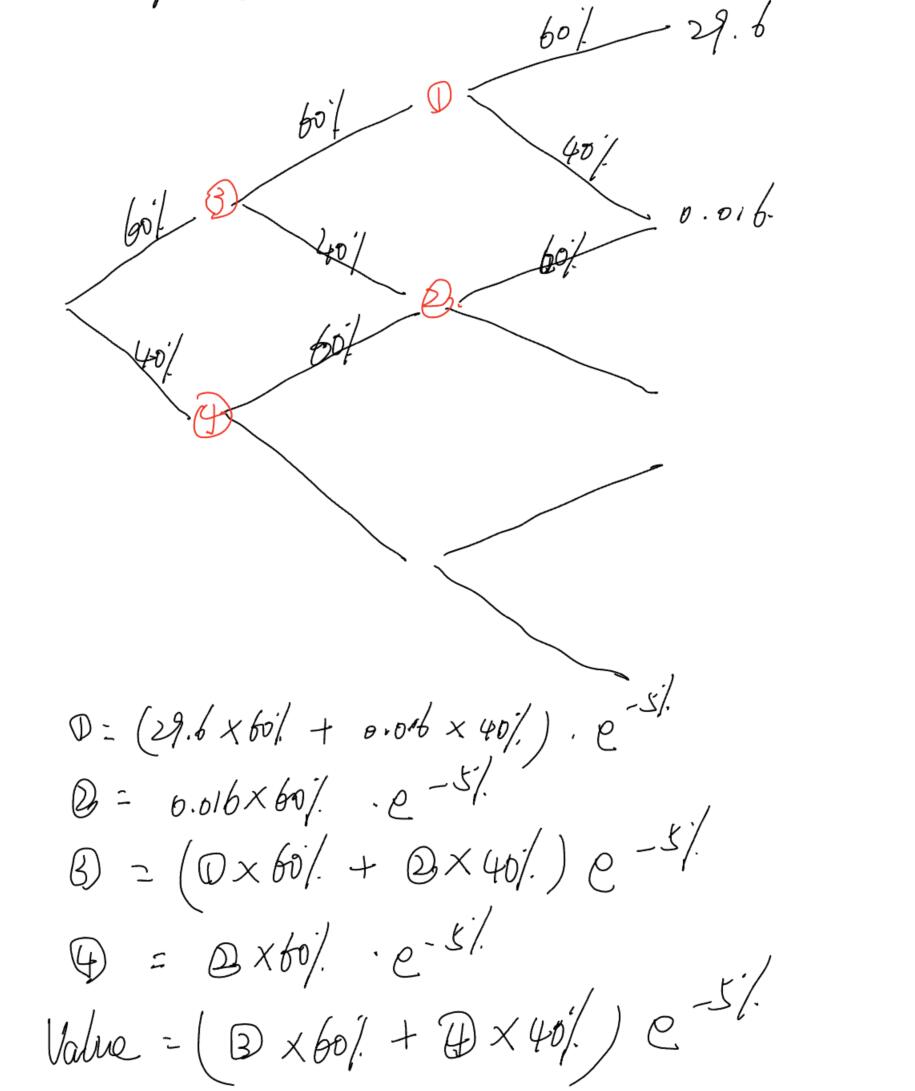 60% 29.6
60% ①
40%
60% ③
0.016
40% 60%
②
40% 60%
④
① = (29.6 × 60% + 0.016 × 40%) · e^-5%
② = 0.016 × 60% · e^-5%
③ = (① × 60% + ② × 40%) e^-5%
④ = ② × 60% · e^-5%
Value = (③ × 60% + ④ × 40%) e^-5%